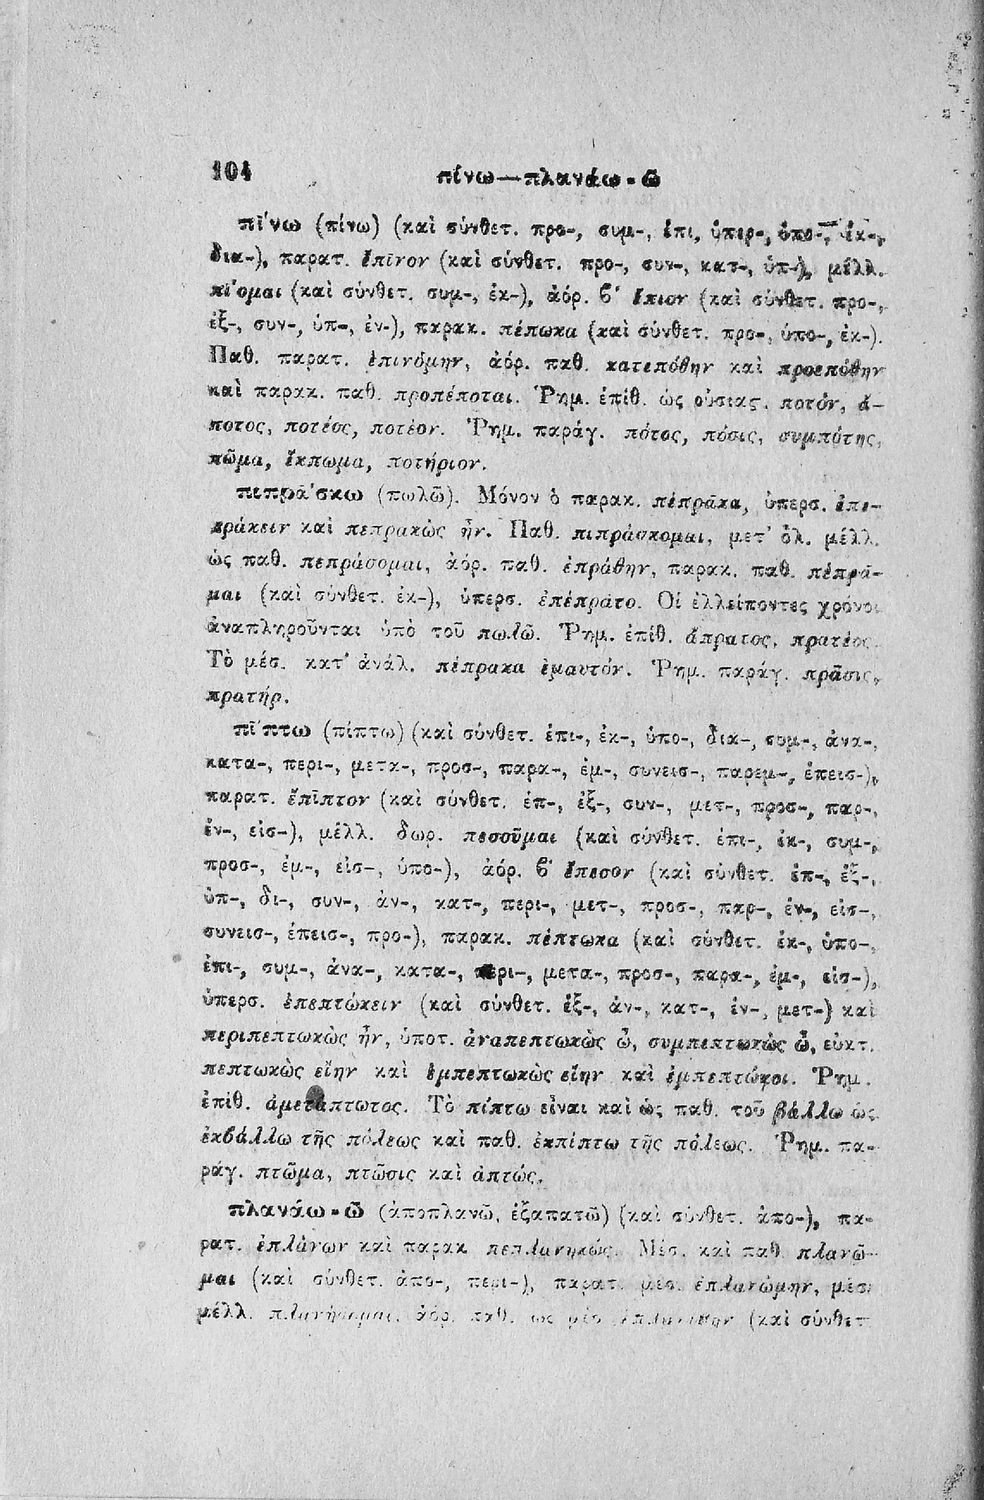 104 πίνω—πλανάω-ῶ
πί̄νω (πίνω) (καὶ σύνθετ. προ-, συμ-, ἐπι, ὑπερ-, ὑπο-, ἐκ-,
δια-), παρατ. ἔπῑνον (καὶ σύνθετ. προ-, συν-, κατ-, ὑπ-), μέλλ.
πί̄ομαι (καὶ σύνθετ. συμ-, ἐκ-), ἀόρ. ϐ′ ἔπιον (καὶ σύνθετ. προ-,
ἐξ-, συν-, ὑπ-, ἐν-), παρακ. πέπωκα (καὶ σύνθετ. προ-, ὑπο-, ἐκ-).
Παθ. παρατ. ἐπινόμην, ἀόρ. παθ. κατεπόθην καὶ προεπόθην
καὶ παρακ. παθ. προπέποται. Ῥημ. ἐπίθ. ὡς οὐσιας. ποτόν, ἄ-
ποτος, ποτέος, ποτέον. Ῥημ. παράγ. πότος, πόσις, συμπότης,
πῶμα, ἔκπωμα, ποτήριον.
πιπρά̄σκω (πωλῶ). Μόνον ὁ παρακ. πέπρᾱκα, ὑπερσ. ἐπε-
πράκειν καὶ πεπρακὼς ἦν. Παθ. πιπράσκομαι, μετ' ὀλ. μέλλ.
ὡς παθ. πεπράσομαι, ἀόρ. παθ. ἐπράθην, παρακ. παθ. πέπρᾱ-
μαι (καὶ σύνθετ. ἐκ-), ὑπερσ. ἐπέπρᾱτο. Οἱ ἐλλείποντες χρόνοι
ἀναπληροῦνται ὑπὸ τοῦ πωλῶ. Ῥημ. ἐπίθ. ἄπρατος, πρατέος.
Τὸ μέσ. κατ' ἀνάλ. πέπρακα ἐμαυτόν. Ῥημ. παράγ. πρᾶσις,
πρατήρ.
πί̄πτω (πίπτω) (καὶ σύνθετ. ἐπι-, ἐκ-, ὑπο-, δια-, συμ-, ἀνα-,
κατα-, περι-, μετα-, προσ-, παρα-, ἐμ-, συνεισ-, παρεμ-, ἐπεισ-),
παρατ. ἔπῑπτον (καὶ σύνθετ. ἐπ-, ἐξ-, συν-, μετ-, προσ-, παρ-,
ἐν-, εἰσ-), μέλλ. δωρ. πεσοῦμαι (καὶ σύνθετ. ἐπι-, ἐκ-, συμ-,
προσ-, ἐμ-, εἰσ-, ὑπο-), ἀόρ. ϐ′ ἔπεσον (καὶ σύνθετ. ἐπ-, ἐξ-,
ὑπ-, δι-, συν-, ἀν-, κατ-, περι-, μετ-, προσ-, παρ-, ἐν-, εἰσ-,
συνεισ-, ἐπεισ-, προ-), παρακ. πέπτωκα (καὶ σύνθετ. ἐκ-, ὑπο-,
ἐπι-, συμ-, ἀνα-, κατα-, περι-, μετα-, προσ-, παρα-, ἐμ-, εἰσ-),
ὑπερσ. ἐπεπτώκειν (καὶ σύνθετ. ἐξ-, ἀν-, κατ-, ἐν-, μετ-) καὶ
περιπεπτωκὼς ἦν, ὑποτ. ἀναπεπτωκὼς ὦ, συμπεπτωκὼς ὦ, εὐκτ.
πεπτωκὼς εἴην καὶ ἐμπεπτωκὼς εἴην καὶ ἐμπεπτώκοι. Ῥημ.
ἐπίθ. ἀμετάπτωτος. Τὸ πίπτω εἶναι καὶ ὡς παθ. τοῦ βάλλω ὡς
ἐκβάλλω τῆς πόλεως καὶ παθ. ἐκπίπτω τῆς πόλεως. Ῥημ. πα-
ράγ. πτῶμα, πτῶσις καὶ ἀπτώς.
πλανάω-ῶ (ἀποπλανῶ, ἐξαπατῶ) (καὶ σύνθετ. ἀπο-), πα-
ρατ. ἐπλάνων καὶ παρακ. πεπλανηκώς. Μέσ. καὶ παθ. πλανῶ-
μαι (καὶ σύνθετ. ἀπο-, περι-), παρατ. μέσ. ἐπλανώμην, μέσ.
μέλλ. πλανήσομαι, ἀόρ. παθ. ὡς μέσ. ἐπλανήθην (καὶ σύνθετ.